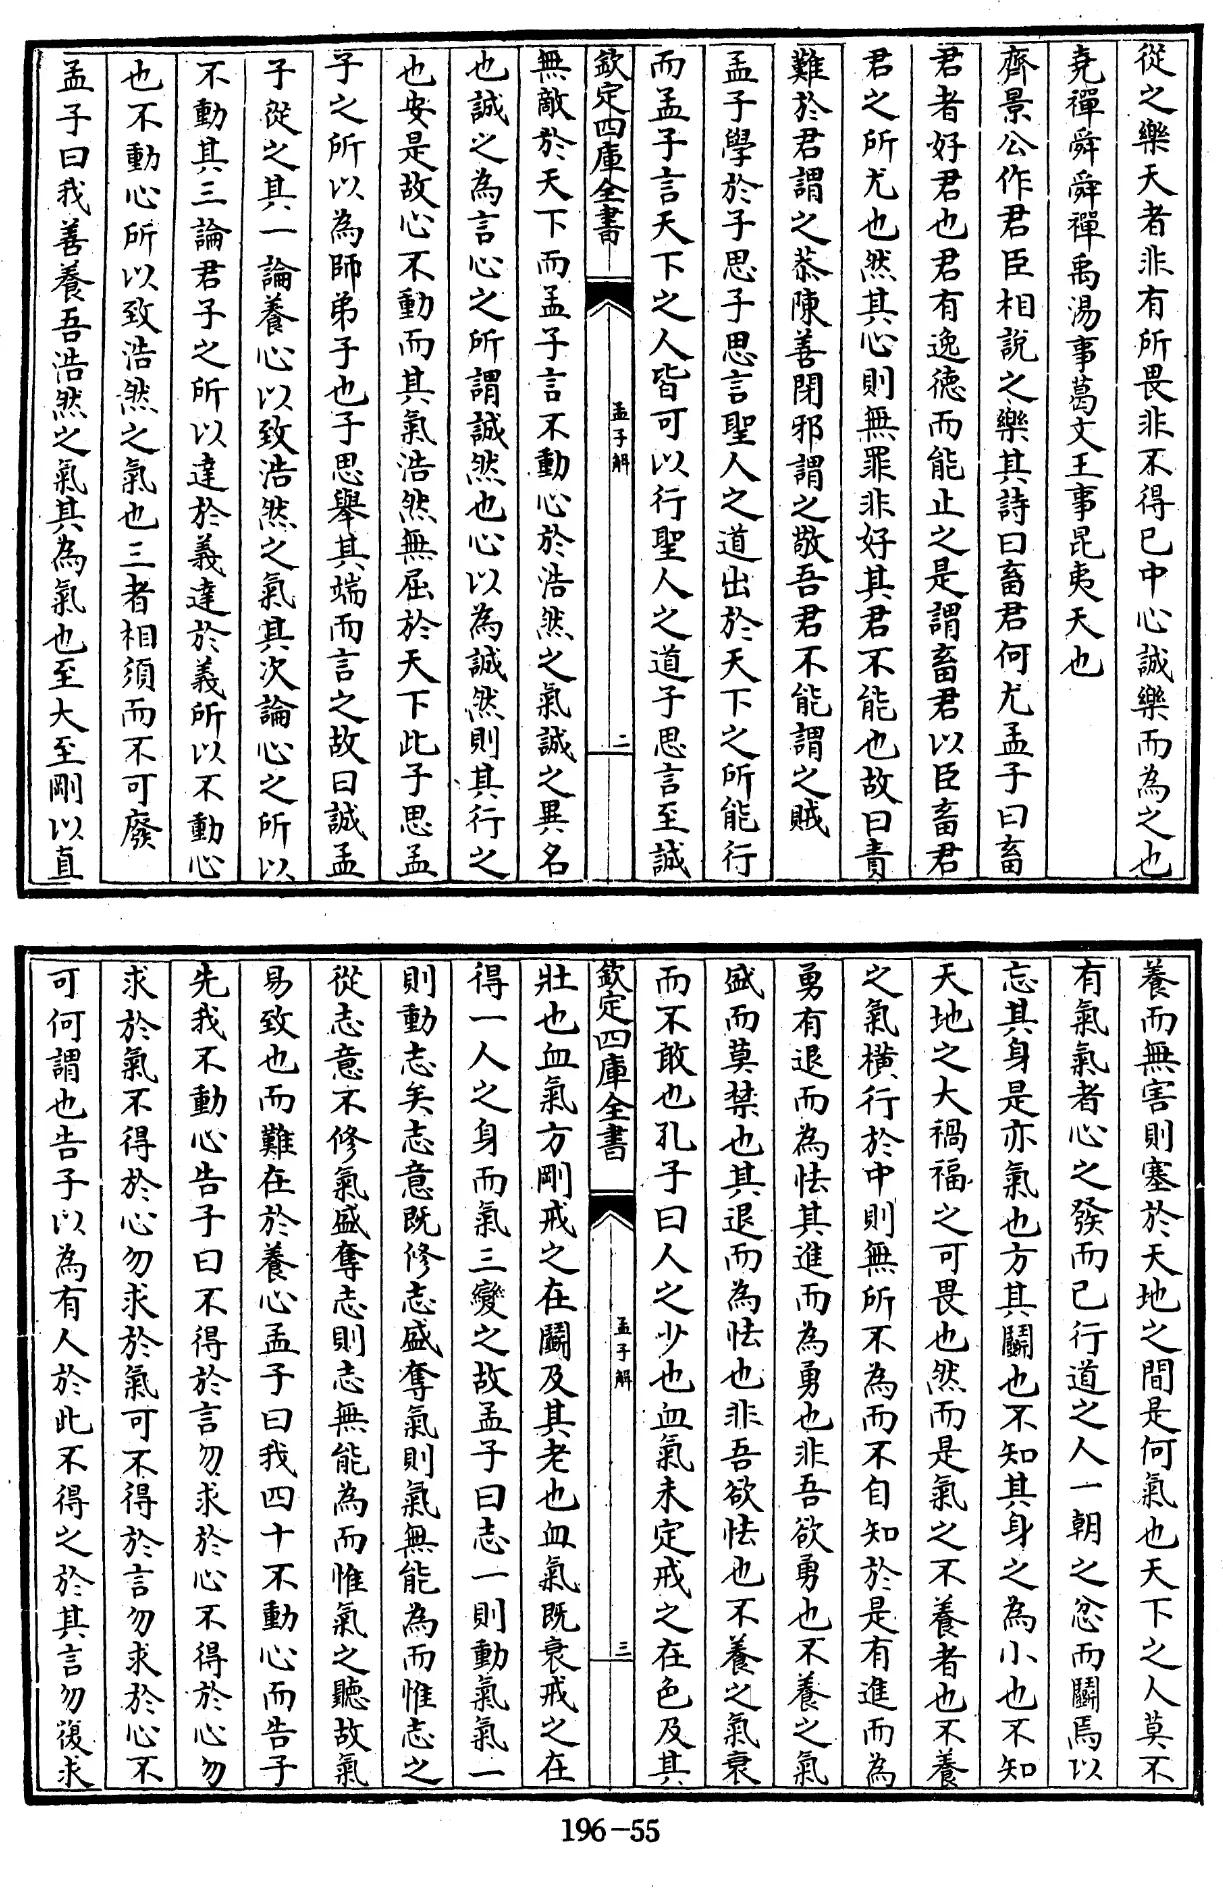 從之樂天者非有所畏非不得已中心誠樂而為之也
堯禪舜舜禪禹湯事葛文王事昆夷天也
齊景公作君臣相說之樂其詩曰畜君何尤孟子曰畜
君者好君也君有逸德而能止之是謂畜君以臣畜君
君之所尤也然其心則無罪非好其君不能也故曰責
難於君謂之恭陳善閉邪謂之敬吾君不能謂之賊
孟子學於子思子思言聖人之道出於天下之所能行
而孟子言天下之人皆可以行聖人之道子思言至誠
欽定四庫全書 孟子解 二
無敵於天下而孟子言不動心於浩然之氣誠之異名
也誠之為言心之所謂誠然也心以為誠然則其行之
也安是故心不動而其氣浩然無屈於天下此子思孟
子之所以為師弟子也子思舉其端而言之故曰誠孟
子從之其一論養心以致浩然之氣其次論心之所以
不動其三論君子之所以達於義達於義所以不動心
也不動心所以致浩然之氣也三者相須而不可廢
孟子曰我善養吾浩然之氣其為氣也至大至剛以直
養而無害則塞於天地之間是何氣也天下之人莫不
有氣氣者心之發而已行道之人一朝之忿而鬭焉以
忘其身是亦氣也方其鬭也不知其身之為小也不知
天地之大禍福之可畏也然而是氣之不養者也不養
之氣橫行於中則無所不為而不自知於是有進而為
勇有退而為怯其進而為勇也非吾欲勇也不養之氣
盛而莫禁也其退而為怯也非吾欲怯也不養之氣衰
而不敢也孔子曰人之少也血氣未定戒之在色及其
欽定四庫全書 孟子解 三
壯也血氣方剛戒之在鬭及其老也血氣既衰戒之在
得一人之身而氣三變之故孟子曰志一則動氣氣一
則動志矣志意既修志盛奪氣則氣無能為而惟志之
從志意不修氣盛奪志則志無能為而惟氣之聽故氣
易致也而難在於養心孟子曰我四十不動心而告子
先我不動心告子曰不得於言勿求於心不得於心勿
求於氣不得於心勿求於氣可不得於言勿求於心不
可何謂也告子以為有人於此不得之於其言勿復求
196-55